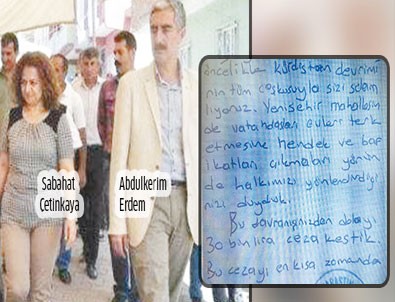 Sabahat
Çetinkaya
Abdulkerim
Erdem
öncelikle kürdistan devrimi
nin tüm coşkusuyla sizi selam
lıyoruz. Yenişehir mahallesin
de vatandaşları evleri terk
etmesine hendek ve
katları çıkmaları yönün
de halkımızı yönlendirdiği
nizi duyduk.
Bu davranışınızdan dolayı
30 bin lira ceza kestik.
Bu cezayı en kısa zamanda